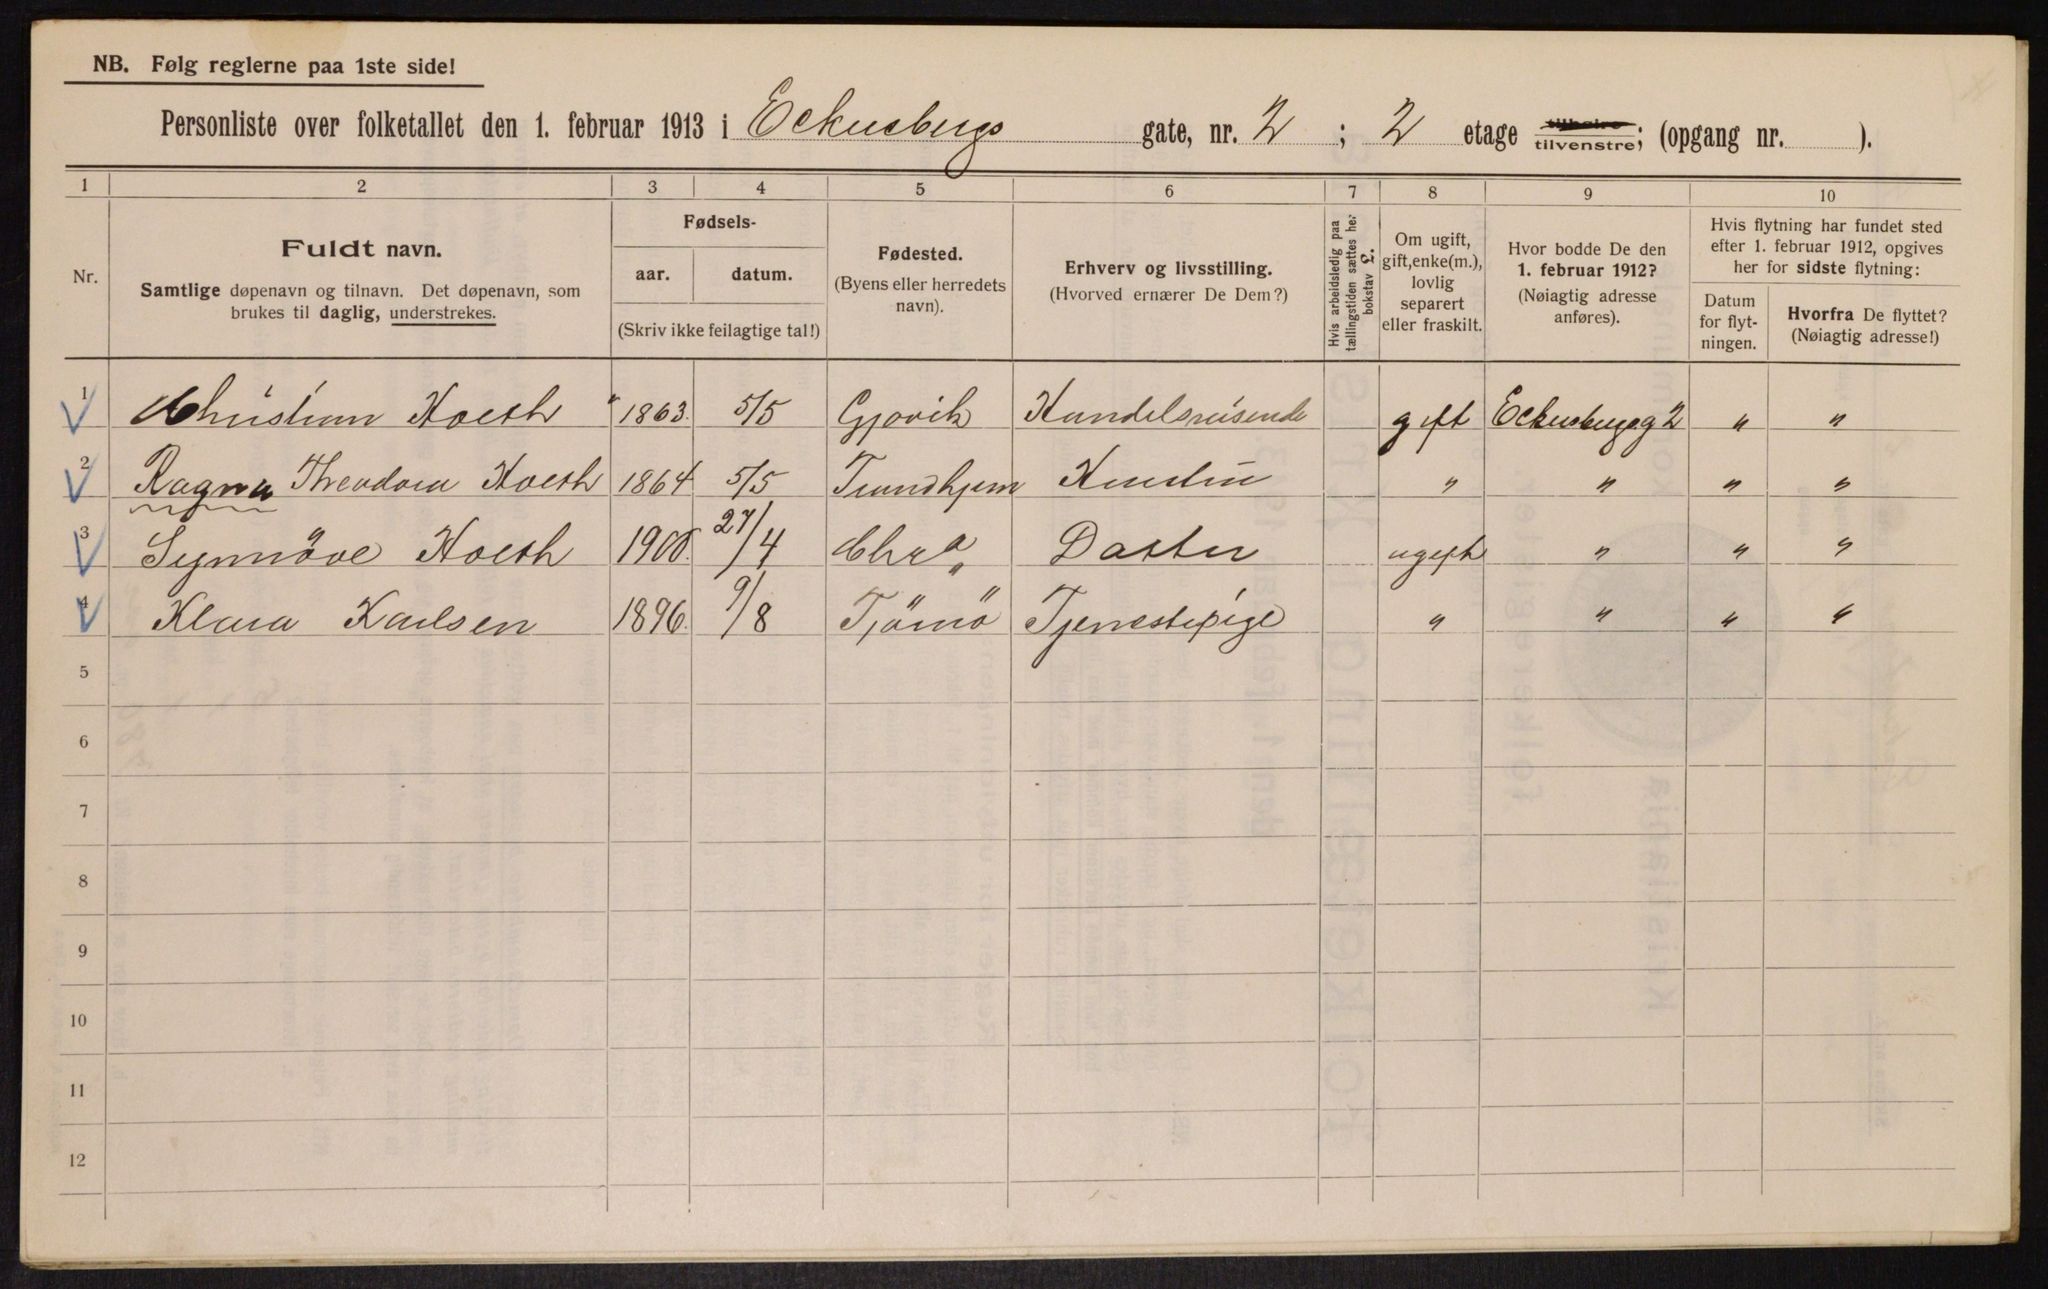 NB. Følg reglerne paa 1ste side!
Personliste over folketallet den 1. februar 1913 i Eckersbergs gate, nr. 2 ; 2 etage tilhøire tilvenstre; (opgang nr. ).
1 2 3 4 5 6 7 8 9 10
Nr.
Fuldt navn.
Samtlige døpenavn og tilnavn. Det døpenavn, som
brukes til daglig, understrekes.
Fødsels-
aar. datum.
(Skriv ikke feilagtige tal!)
Fødested.
(Byens eller herredets
navn).
Erhverv og livsstilling.
(Hvorved ernærer De Dem?)
Hvis arbeidsledig paa
tællingstiden sættes her
bokstav L.
Om ugift,
gift, enke(m.),
lovlig
separert
eller fraskilt.
Hvor bodde De den
1. februar 1912?
(Nøiagtig adresse
anføres).
Hvis flytning har fundet sted
efter 1. februar 1912, opgives
her for sidste flytning:
Datum
for flyt-
ningen.
Hvorfra De flyttet?
(Nøiagtig adresse!)
1 Christian Hoeth " 1863. 5/5 Gjøvik Handelsreisende gift Eckersbergsg 2 " "
2 Ragna Theodora Hoeth 1864 5/5 Trondhjem Hustru " " " "
3 Synnöve Hoeth 27/4 Chr a Datter ugift " " "
4 Klara Karlsen 1896. 9/8 Tjömö Tjenestepige " " " "
5
6
7
8
9
10
11
12